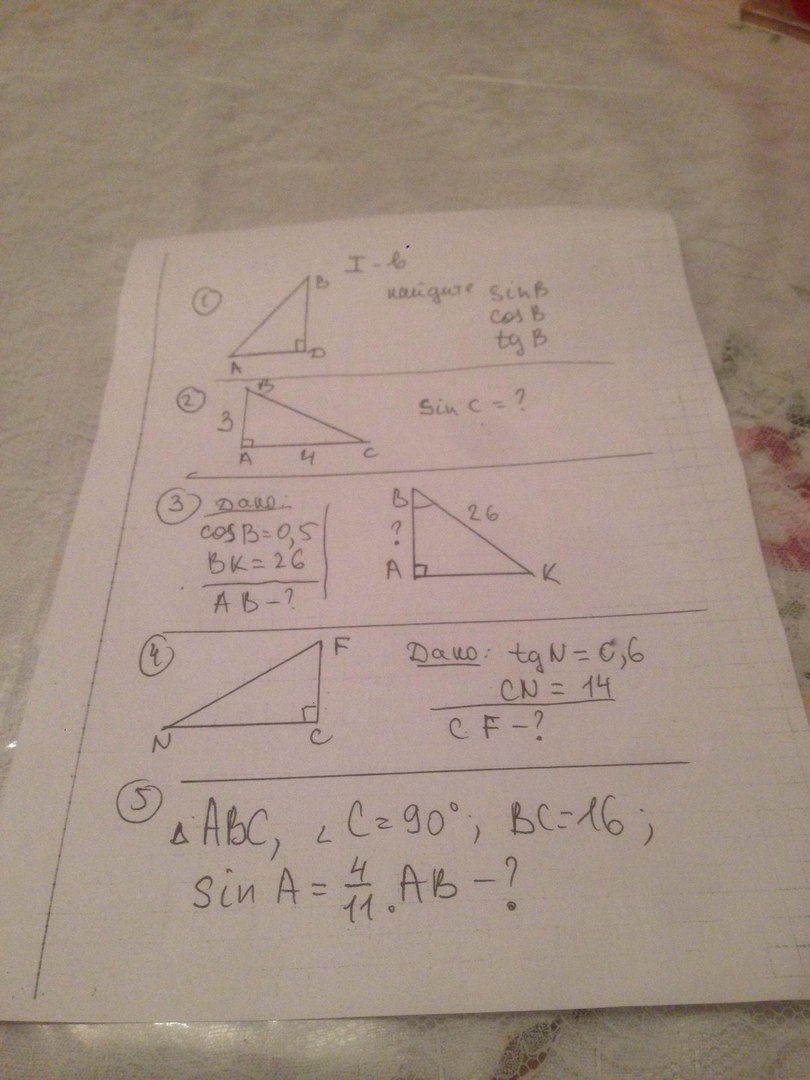 I - в
① B найдите sin B
cos B
tg B
A D
② B sin C = ?
3
A 4 C
③ Дано: B 26
cos B = 0,5 ?
BK = 26 A K
AB - ?
④ F Дано: tg N = 0,6
CN = 14
N C CF - ?
⑤ △ ABC, ∠ C = 90°; BC = 16;
sin A = 4/11. AB - ?